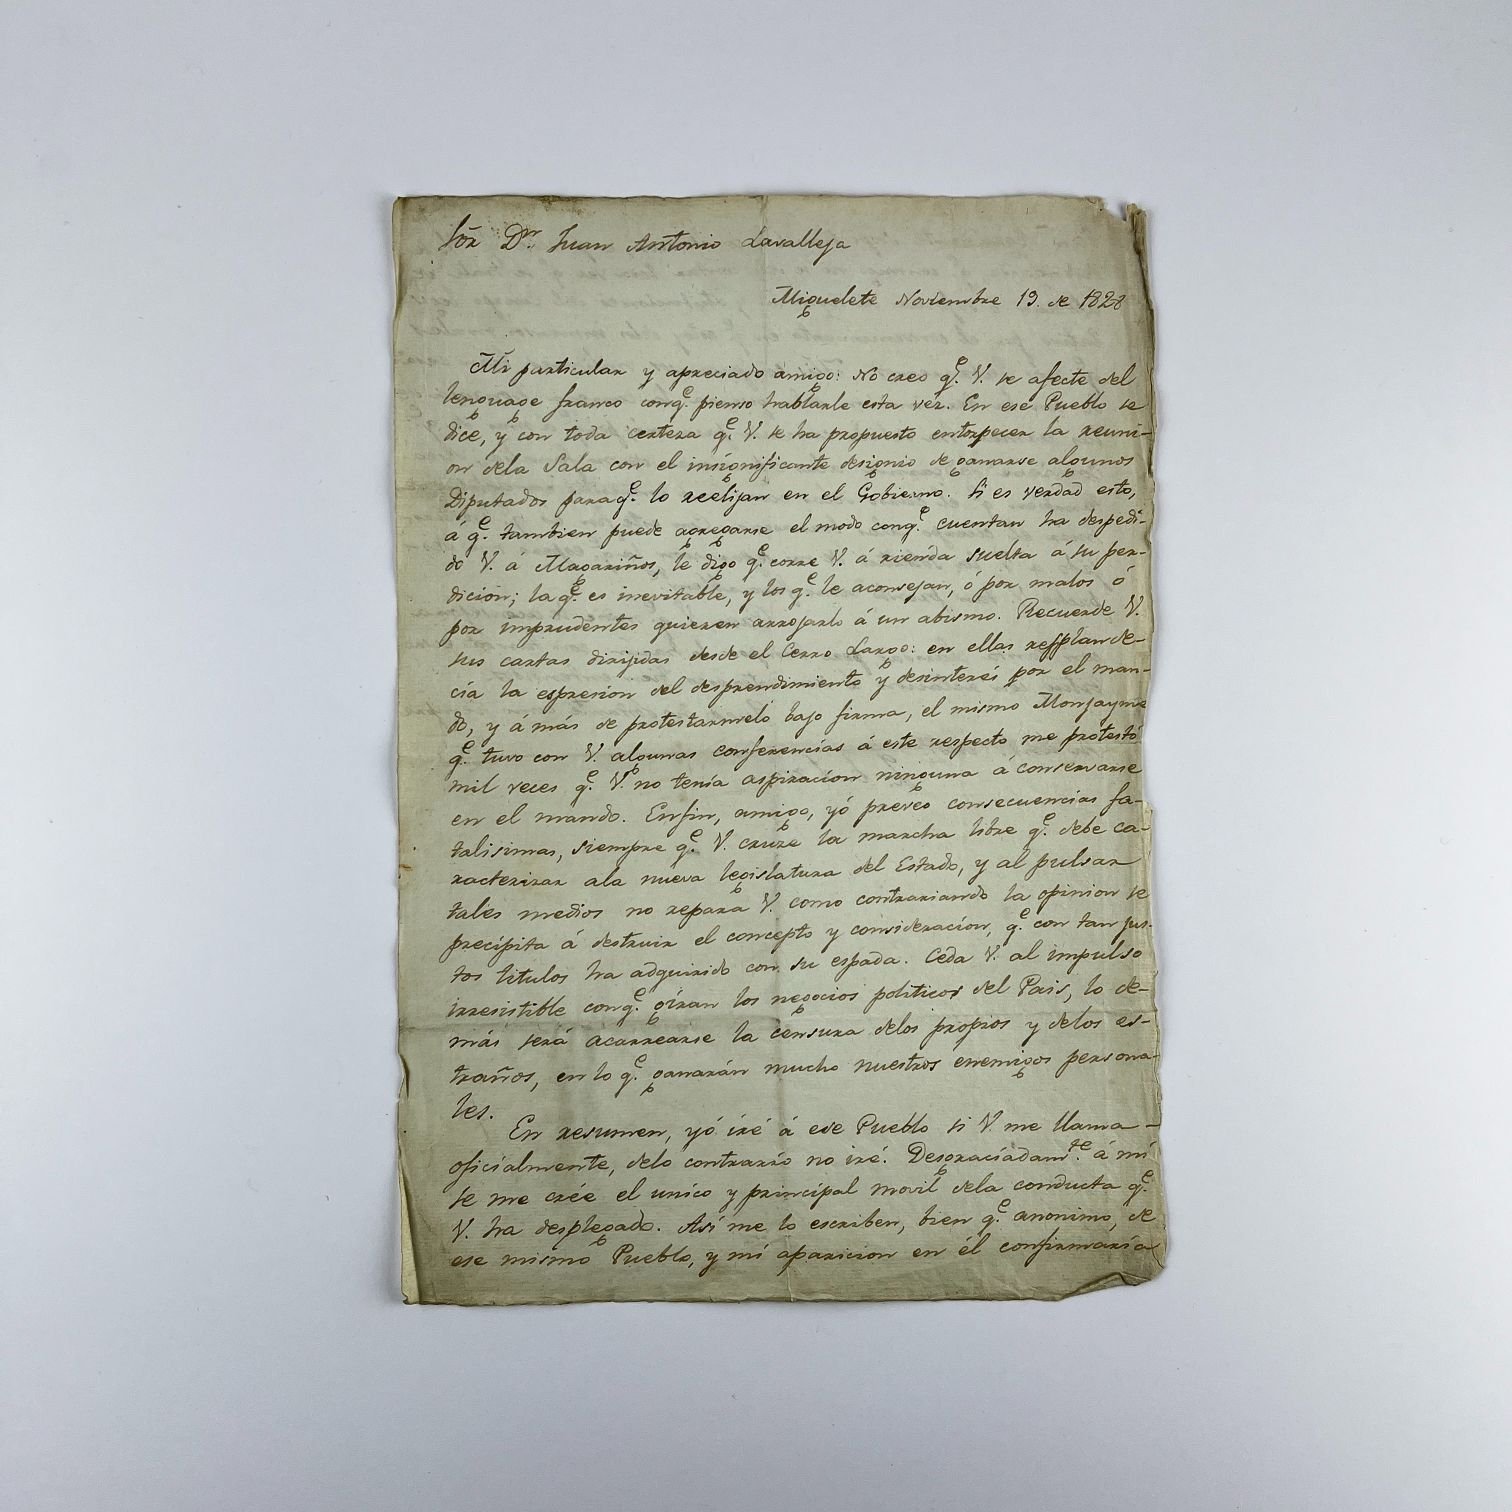 Sõr Dn. Juan Antonio Lavalleja
Miguelete Noviembre 19. de 1828
Mi particular y apreciado amigo: No creo q.e V. se afecte del
lenguage franco conq.e pienso hablarle esta vez. En ese Pueblo se
dice, y con toda certeza q.e V. se ha propuesto entorpecer la reuni-
on dela Sala con el insignificante designio de ganarse algunos
Diputados paraq.e lo reelijan en el Gobierno. Si es verdad esto,
á q.e tambien puede agregarse el modo conq.e cuentan ha despedi-
do V. á Magariños, le digo q.e corre V. á rienda suelta á su per-
dicion; la q.e es inevitable, y los q.e le aconsejan, ó por malos ó
por imprudentes quieren arrojarlo á un abismo. Recuerde V.
sus cartas dirijidas desde el Cerro Largo: en ellas resplande-
cía la espresion del desprendimiento y desinterés por el man-
do, y á más de protestarmeló bajo firma, el mismo Monjayme
q.e tuvo con V. algunas conferencias á este respecto me protestó
mil veces q.e V. no tenía aspiracion ninguna á conservarse
en el mando. Enfin, amigo, yó preveo consecuencias fa-
talisimas, siempre q.e V. cruze la marcha libre q.e debe ca-
racterizar ala nueva legislatura del Estado, y al pulsar
tales medios no repara V. como contrariando la opinion se
precípita á destruir el concepto y consideracion, q.e con tan jus-
tos titulos ha adquirido con su espada. Ceda V. al impulso
irresistible conq.e giran los negocios politicos del Pais, lo de-
más será acarrearse la censura delos propios y delos es-
traños, en lo q.e ganarán mucho nuestros enemigos persona-
les.
En resumen, yó iré á ese Pueblo si V. me llama -
oficialmente, delo contrario no iré. Desgraciadam.te á mí
se me crée el unico y principal movil dela conducta q.e
V. ha desplegado. Así me lo escriben, bien q.e anonimo, de
ese mismo Pueblo, y mi aparicion en él confirmaría